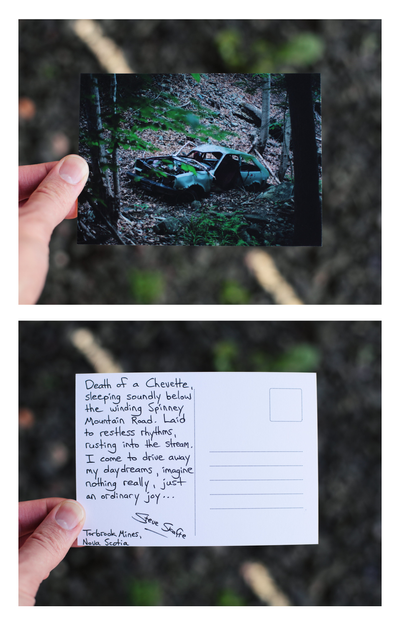 Death of a Chevette,
sleeping soundly below
the winding Spinney
Mountain Road. Laid
to restless rhythms,
rusting into the stream.
I come to drive away
my daydreams, imagine
nothing really, just
an ordinary joy...
Steve Skafte
Torbrook Mines,
Nova Scotia